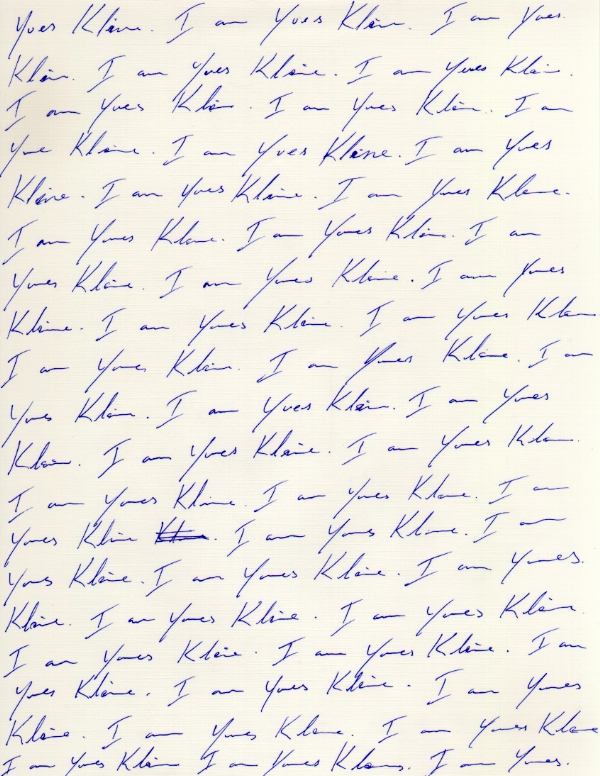 Yves Kleine. I am Yves Kleine. I am Yves.
Kleine. I am Yves Kleine. I am Yves Kleine.
I am Yves Kleine. I am Yves Kleine. I am
Yves Kleine. I am Yves Kleine. I am Yves
Kleine. I am Yves Kleine. I am Yves Kleine.
I am Yves Kleine. I am Yves Kleine. I am
Yves Kleine. I am Yves Kleine. I am Yves
Kleine. I am Yves Kleine. I am Yves Kleine
I am Yves Kleine. I am Yves Kleine. I am
Yves Kleine. I am Yves Kleine. I am Yves
Kleine. I am Yves Kleine. I am Yves Kleine.
I am Yves Kleine. I am Yves Kleine. I am
Yves Kleine. I am Yves Kleine. I am
Yves Kleine. I am Yves Kleine. I am Yves.
Kleine. I am Yves Kleine. I am Yves Kleine.
I am Yves Kleine. I am Yves Kleine. I am
Yves Kleine. I am Yves Kleine. I am Yves
Kleine. I am Yves Kleine. I am Yves Kleine
I am Yves Kleine I am Yves Kleine. I am Yves.